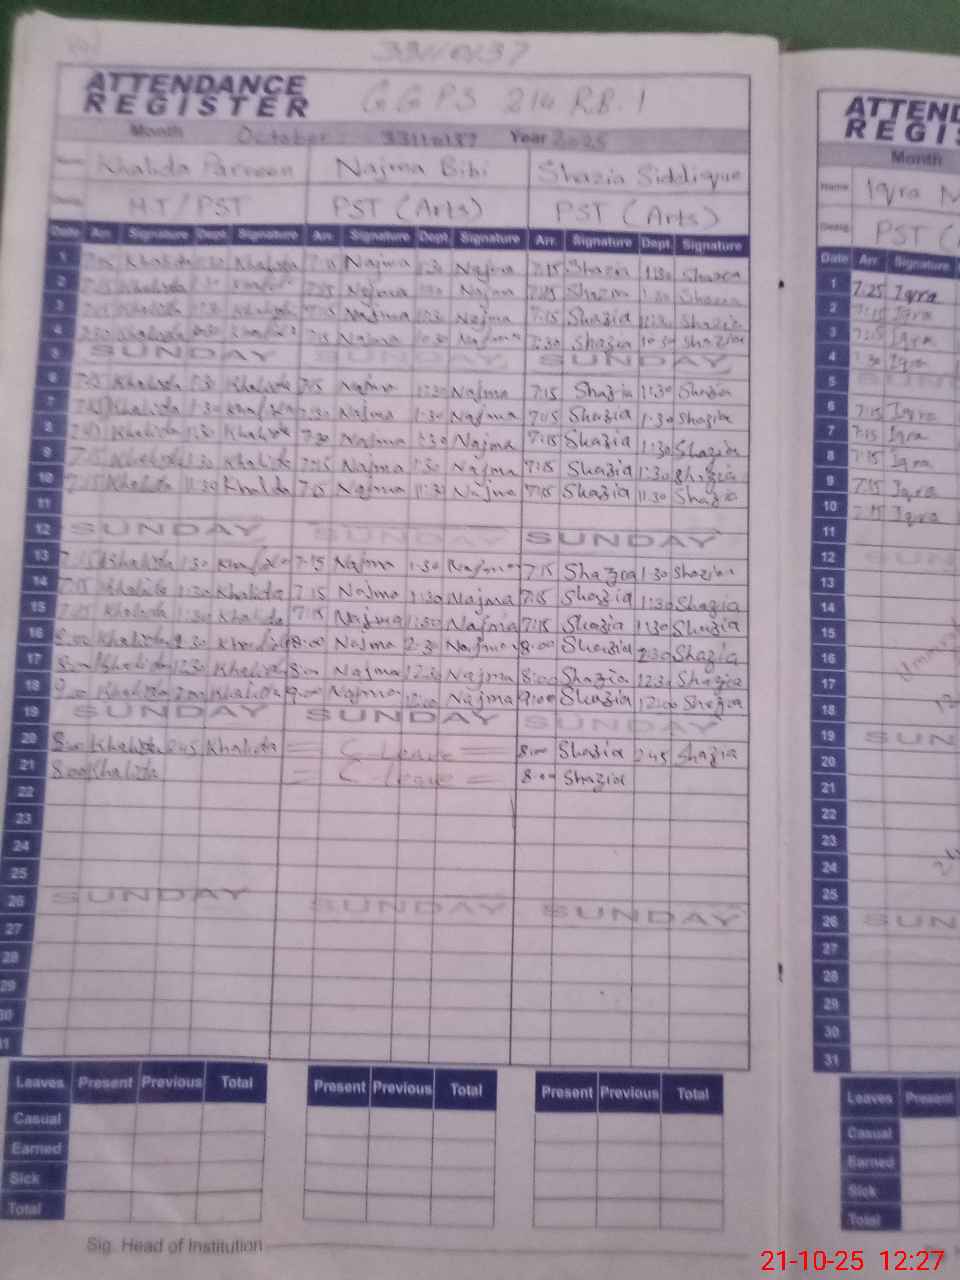 ATTENDANCE REGISTER GGPS 214 RB.1
Month October 33110137 Year 2025
Khalida Parveen Najma Bibi Shazia Siddique
H.T / PST PST (Arts) PST (Arts)
Date Arr. Signature Dept. Signature Arr. Signature Dept. Signature Arr. Signature Dept. Signature
1 Khalida Khalida Najma Najma 7:15 Shazia 1:30 Shazia
2 Najma Najma Shazia Shazia
3 Najma Najma 7:15 Shazia Shazia
4 Khalida 7:15 Najma Najma 7:30 Shazia Shazia
5 SUNDAY SUNDAY SUNDAY
6 7:15 Khalida Khalida 7:15 Najma 11:30 Najma 7:15 Shazia 11:30 Shazia
7 Khalida 1:30 Najma 1:30 Najma 7:15 Shazia 1:30 Shazia
8 Khalida 1:30 Khalida 7:30 Najma 1:30 Najma 7:15 Shazia 1:30 Shazia
9 7:15 Khalida 1:30 Khalida 7:15 Najma 1:30 Najma 7:15 Shazia 1:30 Shazia
10 7:15 Khalida 11:30 Khalida 7:15 Najma Najma 7:15 Shazia 11.30 Shazia
11
12 SUNDAY SUNDAY SUNDAY
13 Khalida 1:30 7:15 Najma 1:30 Najma 7:15 Shazia 1:30 Shazia
14 7:15 Khalida 1:30 Khalida 7:15 Najma 1:30 Najma 7:15 Shazia 1:30 Shazia
15 Khalida 1:30 Khalida 7:15 Najma 1:30 Najma 7:15 Shazia 1:30 Shazia
16 8:00 Khalida 2:30 8:00 Najma 2:30 Najma 8:00 Shazia 2:30 Shazia
17 8:00 Khalida 12:30 Khalida 8:00 Najma 12:30 Najma 8:00 Shazia 12:30 Shazia
18 9:00 Khalida Khalida 9:00 Najma 12:00 Najma 9:00 Shazia 12:00 Shazia
19 SUNDAY SUNDAY SUNDAY
20 8:00 Khalida 2:45 Khalida = C leave = 8:00 Shazia 2:45 Shazia
21 8:00 Khalida = C leave = 8:00 Shazia
22
23
24
25
26 SUNDAY SUNDAY SUNDAY
27
28
29
30
31
Leaves Present Previous Total Present Previous Total Present Previous Total
Casual
Earned
Sick
Total
Sig. Head of Institution
ATTEND
REGIS
Month
Name Iqra M
PST (
Date Arr. Signature
1 7:25 Iqra
2 7:15 Iqra
3 7:15 Iqra
4 Iqra
5 SUN
6 7:15 Iqra
7 7:15 Iqra
8 7:15 Iqra
9 7:15 Iqra
10 7:15 Iqra
11
12 SUN
13
14
15
16
17
18
19 SUN
20
21
22
23
24
25
26 SUN
27
28
29
30
31
Leaves Present
Casual
Earned
Sick
Total
21-10-25 12:27